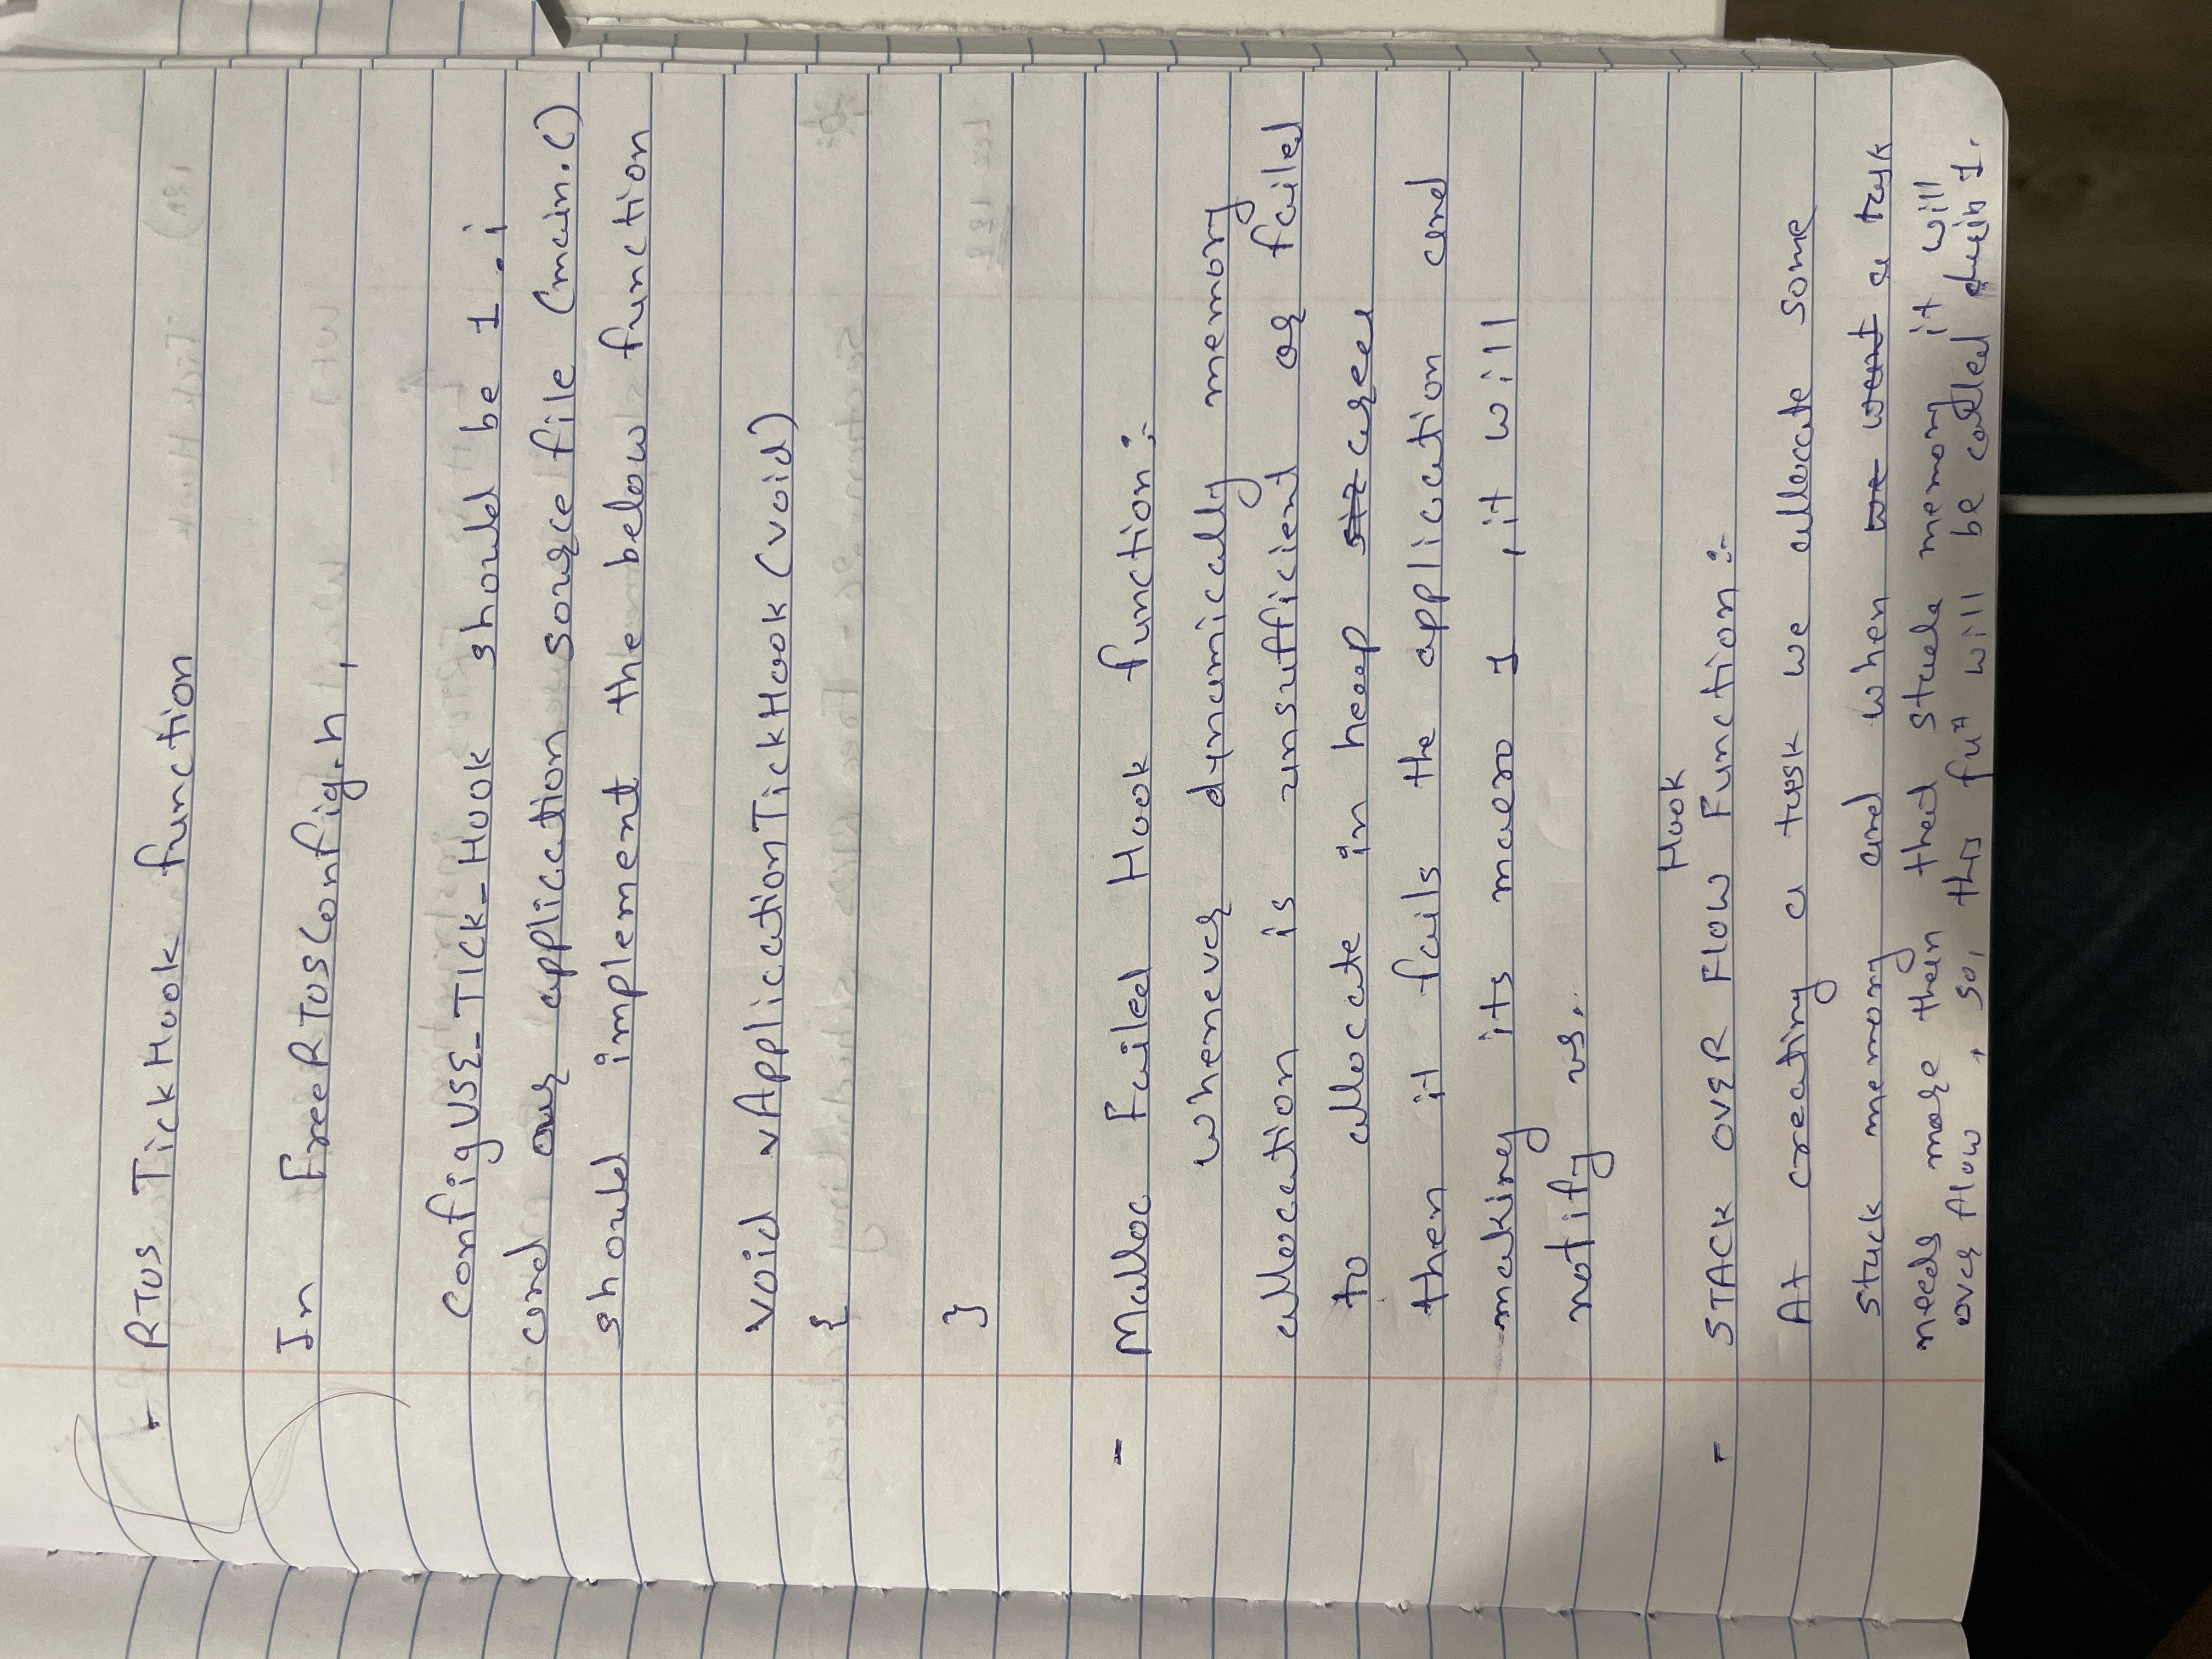 - RTOS TickHook function
In FreeRTOSConfig.h,
configUSE_TICK_HOOK should be 1.
and our application source file (main.c)
should implement the below function
void vApplicationTickHook (void)
{
}
- Malloc Failed Hook function :-
Whenever dynamically memory
allocation is unsufficient or failed
to allocate in heap area
then it fails the application and
making its macro 1 , it will
notify us.
Hook
- STACK OVER FLOW Function :-
At creating a task we allocate some
stack memory and when we want a task
needs more then that stack memory it will
over flow , so, this fuⁿ will be called